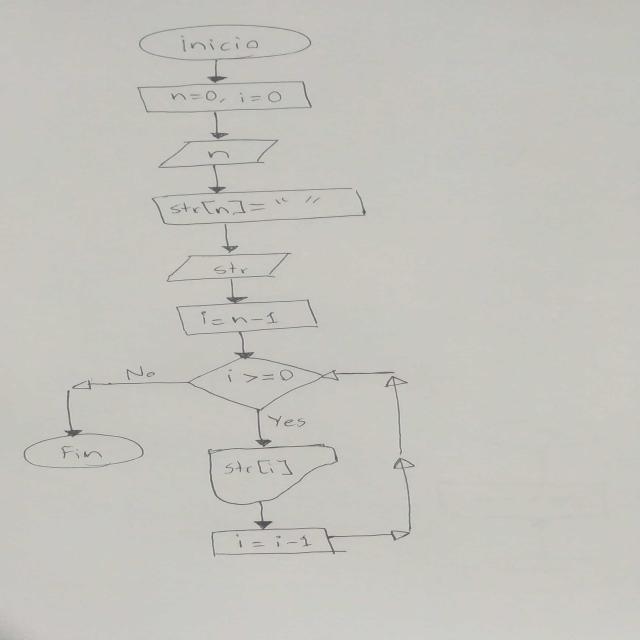 inicio
n=0, i=0
n
str[n]= " "
str
i=n-1
i >=0
No
Yes
Fin
str[i]
i = i-1